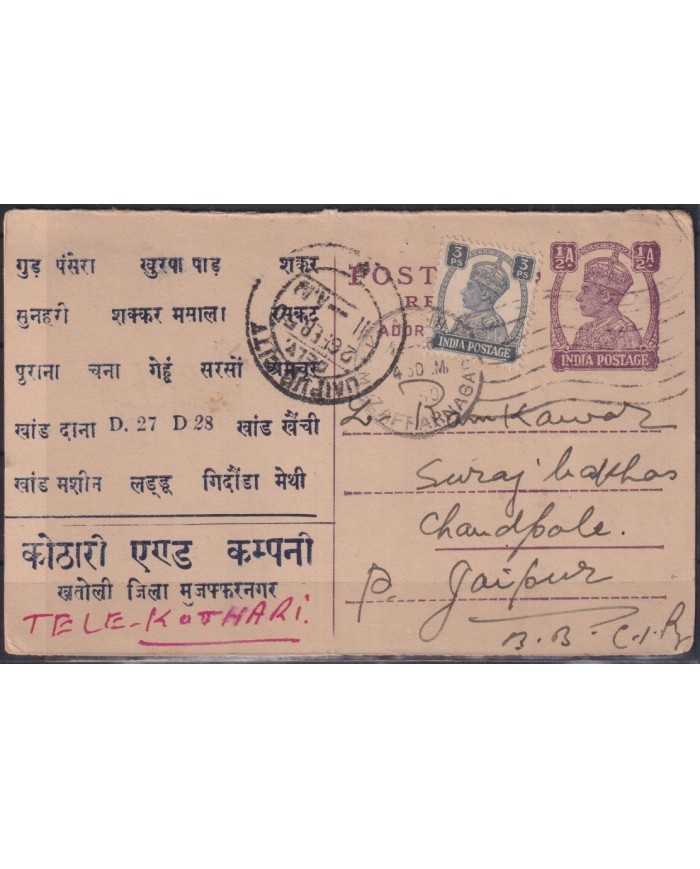 गुड़ पंसेरा खुरपा पाड़ शक्कर
सुनहरी शक्कर मसाला
पुराना चना गेहूं सरसों अमचूर
खांड दाना D. 27 D 28 खांड खैंची
खांड मशीन लड्डू गिदौंडा मेथी
कोठारी एण्ड कम्पनी
खतोली जिला मुजफ्फरनगर
TELE-KOTHARI.
POST
RE
ADDR
3 PS 3 PS
INDIA POSTAGE
½A ½A
INDIA POSTAGE
JAIPUR CITY
DELY.
26 FEB 50
11 A.M
4 30 M
Ram Kawar
Suraj bakhas
Chandpole.
P. Jaipur
B. B. C. I. Ry